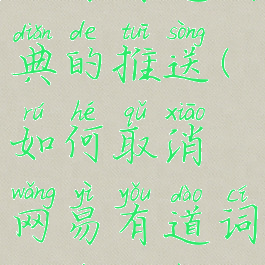 diǎn de tuī sòng
典的推送(
rú hé qǔ xiāo
如何取消
wǎng yì yǒu dào cí
网易有道词